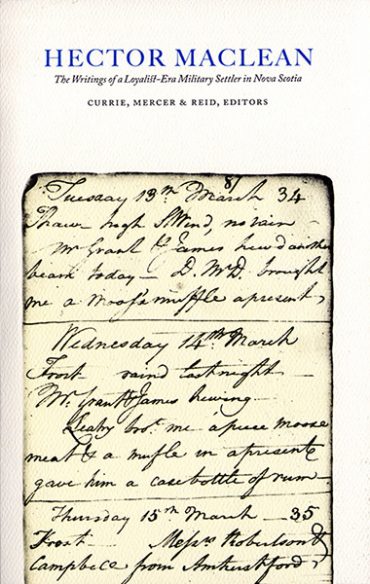 HECTOR MACLEAN
The Writings of a Loyalist-Era Military Settler in Nova Scotia
CURRIE, MERCER & REID, EDITORS
Tuesday 13th March 34
Thaw high S.Wind, no rain
Mr Grant & James hew'd another
beam today D. McD. brought
me a Moose muffle a present
Wednesday 14th March
Frost raind last night
Mr. Grant & James hewing
Leahy bro.t me a piece moose
meat & a mufle in a present
gave him a case bottle of rum
Thursday 15th March 35
Frost Messrs Robertson &
Campbell from Amherst ford